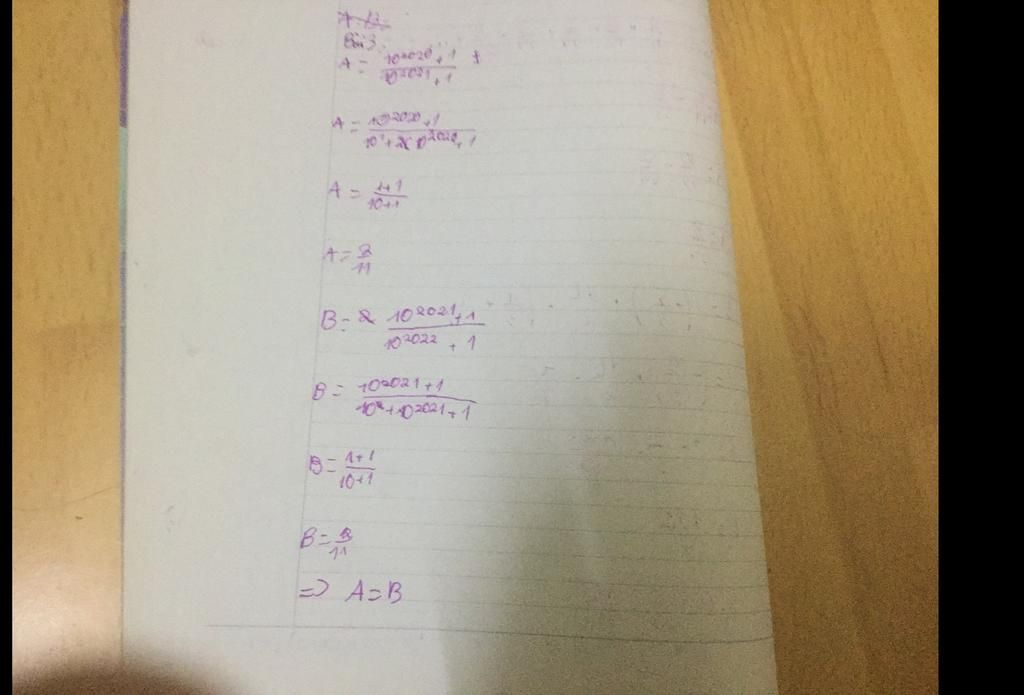 Bài 3:
A = \frac{10^{2020}+1}{10^{2021}+1}
A = \frac{10^{2020}+1}{10^{1}+10^{2020}+1}
A = \frac{1+1}{10+1}
A = \frac{2}{11}
B = \frac{10^{2021}+1}{10^{2022}+1}
B = \frac{10^{2021}+1}{10^{1}+10^{2021}+1}
B = \frac{1+1}{10+1}
B = \frac{2}{11}
=> A = B